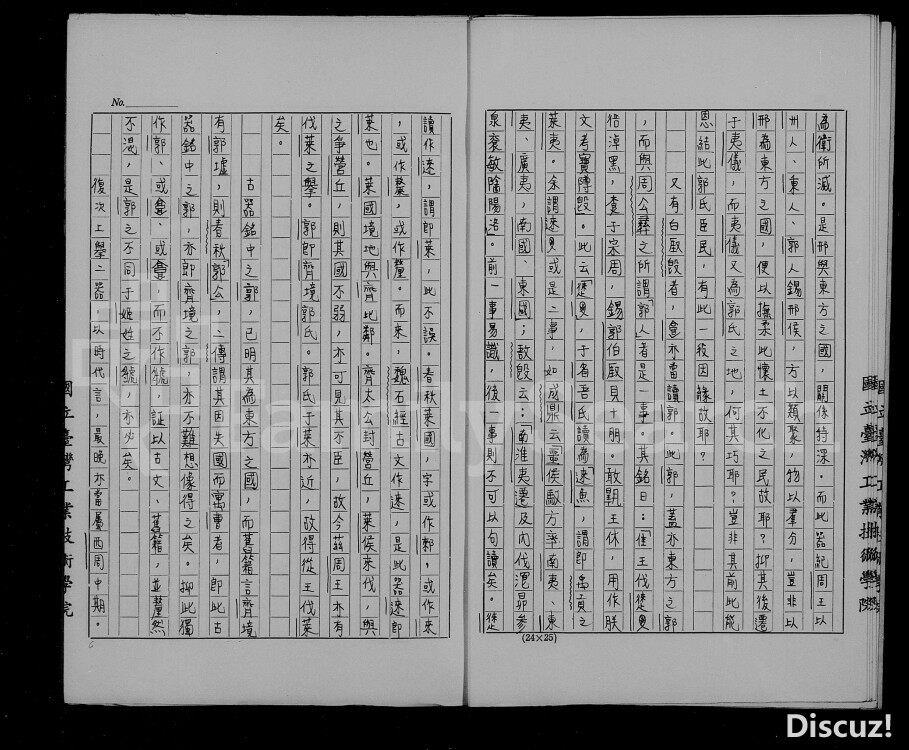 為衛所滅。是邢與東方之國，關係特深。而此器記周王以
卅人、東人、郭人錫邢侯，方以類聚，物以羣分，豈非以
邢為東方之國，便以撫柔此懷土不化之民故耶？抑其後遷
于夷儀，而夷儀又為郭氏之地，何其巧耶？豈非其前此能
恩結此郭氏臣民，有此一段因緣故耶？
又有白𣪘者，亦當讀郭。此郭，蓋亦東方之郭
，而與周公彝之所謂「郭人」者是一事。其銘曰：「隹王伐逨
淖黑，至于宗周，錫郭伯貝十朋。敢王休，用作朕
文考寶𣪘。此云「逨」，于省吾氏讀為「逨魚」，謂即禹貢之
萊夷。余謂逨或是二事，如成鼎云：「侯馭方率南夷、東
夷、廣夷，南國、東國；敔𣪘云：南淮夷遷及內伐昴參
泉裕敏陰陽洛。前一事易識，後一事則不可以句讀矣。逨
讀作逨，謂即萊，此不誤。春秋萊國，字或作郲，或作來
，或作斄，或作釐。而來，魏石經古文作逨，是此器逨即
萊也。萊國境地與齊比鄰。齊太公封營丘，萊侯來伐，與
之爭營丘，則其國不弱，亦可見其不臣，故今茲周王亦有
伐萊之舉。郭即齊境郭氏。郭氏于萊亦近，故得從王伐萊
矣。
古器銘中之郭，已明其為東方之國，而舊籍言齊境
有郭墟，則春秋「郭公」，二傳謂其因失國而寓曹者，即此古
器銘中之郭，亦即齊境之郭，亦不難想像得之矣。抑此獨
作郭、或、或，而不作虢，証以古文、舊籍，並釐然
不混，是郭之不同于姬姓之虢，亦必矣。
復次上舉二器，以時代言，最晚亦當屬西周中期。
No.
(24×25)
國立臺灣工業技術學院
6
Discuz!